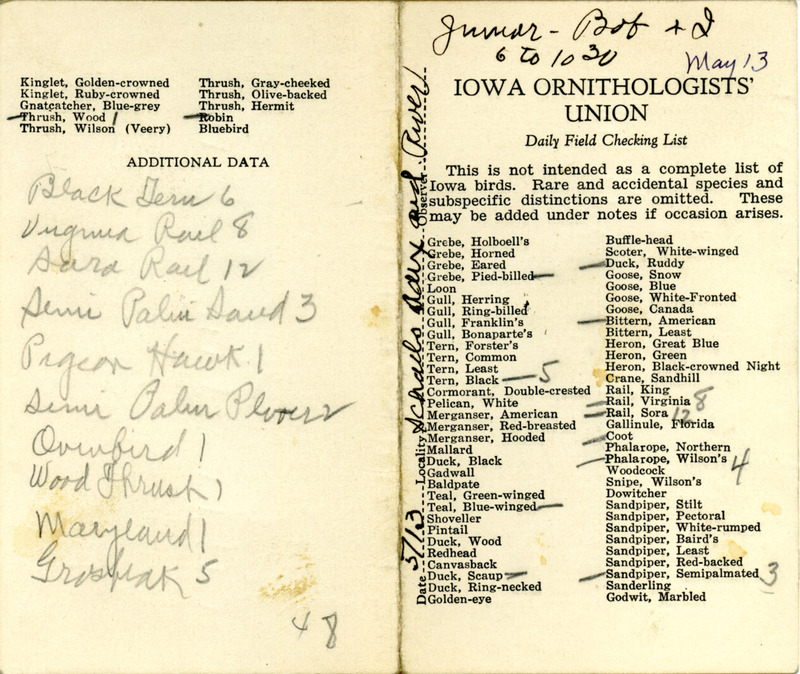 Kinglet, Golden-crowned
Kinglet, Ruby-crowned
Gnatcatcher, Blue-grey
Thrush, Wood 1
Thrush, Wilson (Veery)
Thrush, Gray-cheeked
Thrush, Olive-backed
Thrush, Hermit
Robin
Bluebird
ADDITIONAL DATA
Black Tern 6
Virginia Rail 8
Sora Rail 12
Semi Palm Sand 3
Pigeon Hawk 1
Semi Palm Plover 2
Ovenbird 1
Wood Thrush 1
Maryland 1
Grosbeak 5
48
Junior - Bob + I
6 to 10 30
May 13
IOWA ORNITHOLOGISTS'
UNION
Daily Field Checking List
This is not intended as a complete list of
Iowa birds. Rare and accidental species and
subspecific distinctions are omitted. These
may be added under notes if occasion arises.
Date 5/13 Locality Sioux River Observer
Grebe, Holboell's
Grebe, Horned
Grebe, Eared
Grebe, Pied-billed
Loon
Gull, Herring
Gull, Ring-billed
Gull, Franklin's
Gull, Bonaparte's
Tern, Forster's
Tern, Common
Tern, Least
Tern, Black 5
Cormorant, Double-crested
Pelican, White
Merganser, American
Merganser, Red-breasted
Merganser, Hooded
Mallard
Duck, Black
Gadwall
Baldpate
Teal, Green-winged
Teal, Blue-winged
Shoveller
Pintail
Duck, Wood
Redhead
Canvasback
Duck, Scaup
Duck, Ring-necked
Golden-eye
Buffle-head
Scoter, White-winged
Duck, Ruddy
Goose, Snow
Goose, Blue
Goose, White-Fronted
Goose, Canada
Bittern, American
Bittern, Least
Heron, Great Blue
Heron, Green
Heron, Black-crowned Night
Crane, Sandhill
Rail, King
Rail, Virginia 8
Rail, Sora 12
Gallinule, Florida
Coot
Phalarope, Northern
Phalarope, Wilson's 4
Woodcock
Snipe, Wilson's
Dowitcher
Sandpiper, Stilt
Sandpiper, Pectoral
Sandpiper, White-rumped
Sandpiper, Baird's
Sandpiper, Least
Sandpiper, Red-backed
Sandpiper, Semipalmated 3
Sanderling
Godwit, Marbled